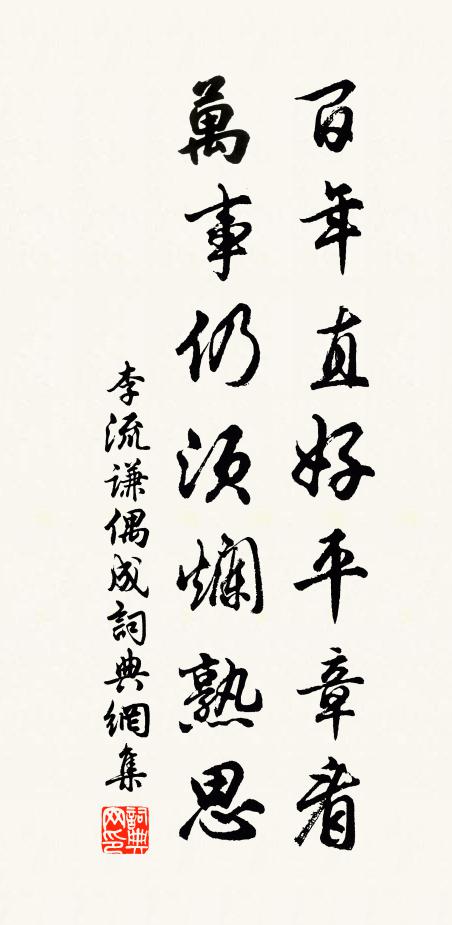 百年直好平章看
萬事仍須爛熟思
李流謙偶成詞典網集
詞典
网印